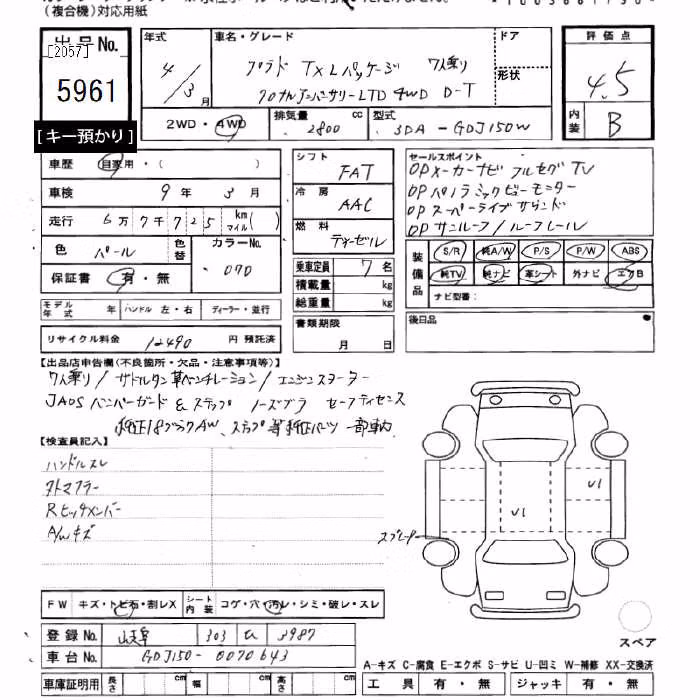 (複合機)対応用紙
出品No.
[2057]
5961
[キー預かり]
年式 車名・グレード ドア
4/3月 プラド TXLパッケージ 7人乗り
70thアニバーサリーLTD 4WD D-T
形状
評価点
4.5
内装 B
2WD・4WD 排気量 2800 cc 型式 3DA-GDJ150W
車歴 自家用・( )
車検 9年 3月
走行 6万7千725 km マイル( )
色 パール 色替 カラーNo. 070
保証書 有・無
シフト FAT
冷房 AAC
燃料 ディーゼル
乗車定員 7名
積載量 kg
総重量 kg
書類期限
月 日
セールスポイント
OPメーカーナビ フルセグTV
OPパノラミックビューモニター
OPスーパーライブサウンド
OPサンルーフ/ルーフレール
装備品 S/R 純A/W P/S P/W ABS
純TV 純ナビ 革シート 外ナビ エアB
ナビ型番:
モデル年式 年 ハンドル 左・右 ディーラー・並行
リサイクル料金 12490 円 預託済
後日品
【出品店申告欄(不良箇所・欠品・注意事項等)】
7人乗り/サドルタン革ベンチレーション/エンジンスターター
JAOSバンパーガード&ステップ ノーズブラ セーフティセンス
純正18ブラックAW、ステップ等純正パーツ一部車内
【検査員記入】
ハンドルスレ
外マフラー
Rヒッチメンバー
A/Wキズ
スプレー
U1
U1
FW キズ・トビ石・割レX シート内装 コゲ・穴・汚レ・シミ・破レ・スレ
登録No. 303 ひ 3987
車台No. GDJ150-0070643
車庫証明用 長さ cm 幅 cm 高さ cm
スペア
A-キズ C-腐食 E-エクボ S-サビ U-凹ミ W-補修 XX-交換済
工具 有・無 ジャッキ 有・無